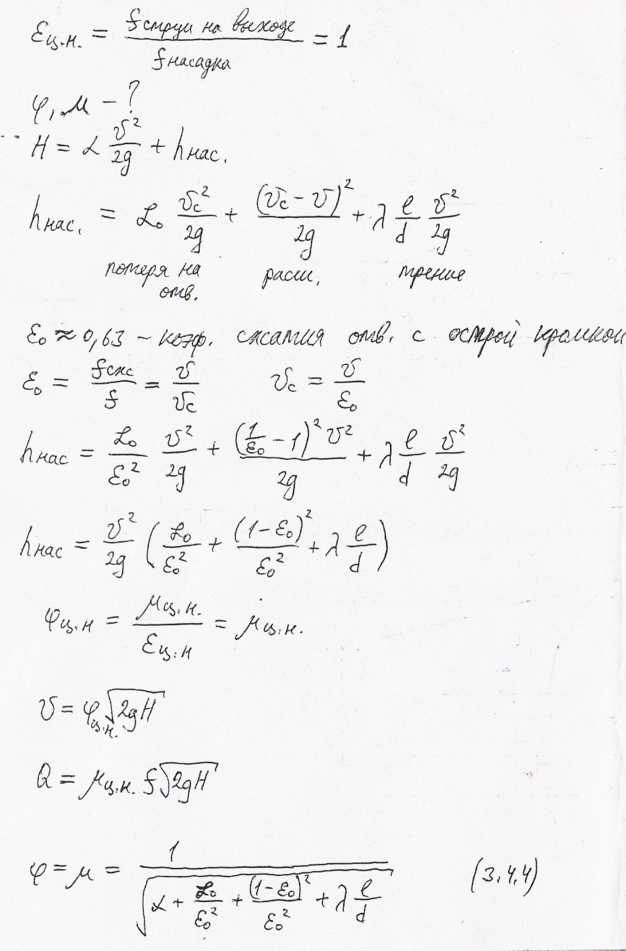 εц.н. = fструи на выходе / fнасадка = 1
φ, μ – ?
H = α v²/2g + hнас.
hнас. = ℒ₀ vc²/2g + (vc – v)²/2g + λ l/d v²/2g
потеря на отв. расш. трение
ε₀ ≈ 0,63 – коэф. сжатия отв. с острой кромкой
ε₀ = fсж/f = v/vc vc = v/ε₀
hнас = ℒ₀/ε₀² v²/2g + (1/ε₀ – 1)² v²/2g + λ l/d v²/2g
hнас = v²/2g (ℒ₀/ε₀² + (1–ε₀)²/ε₀² + λ l/d)
φц.н = μц.н./εц.н = μц.н.
v = φц.н. √2gH
Q = μц.н. f √2gH
φ = μ = 1 / √(α + ℒ₀/ε₀² + (1–ε₀)²/ε₀² + λ l/d) (3.4.4)